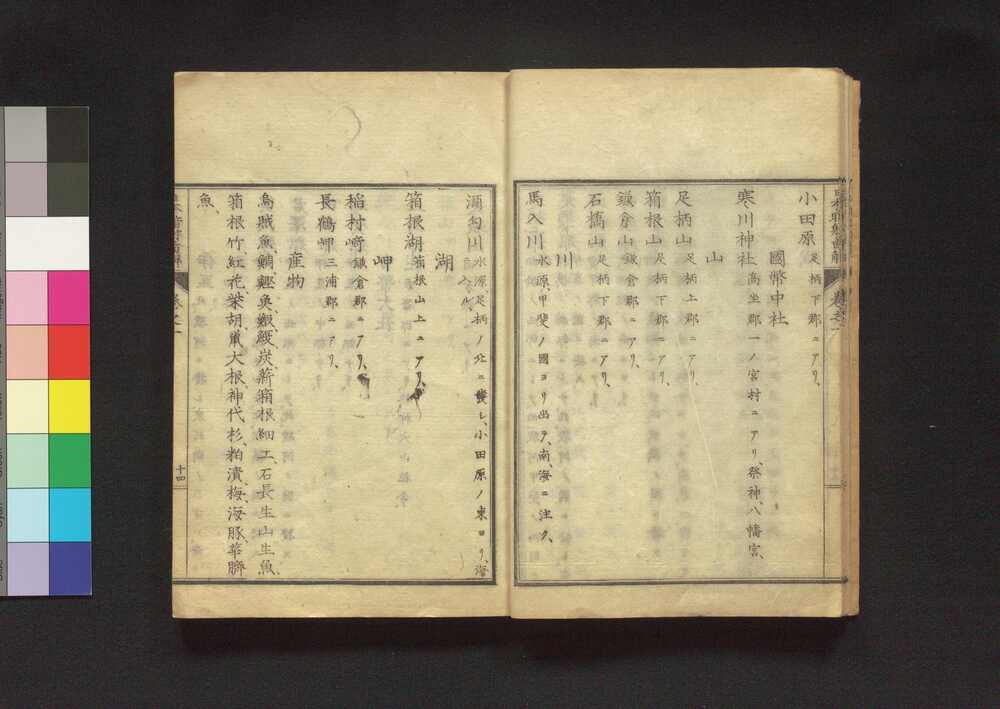 小田原 足柄下郡ニアリ、
國幣中社
寒川神社 高坐郡一ノ宮村ニアリ、祭神、八幡宮、
山
足柄山 足柄上郡ニアリ、
箱根山 足柄下郡ニアリ、
鎌倉山 鎌倉郡ニアリ、
石橋山 足柄下郡ニアリ、
川
馬入川 水源、甲斐ノ國ヨリ出テ、南、海ニ注ク、
酒匂川 水源足柄ノ北ニ發シ、小田原ノ東ヨリ、海ニ入ル、
湖
箱根湖 箱根山上ニアリ、
岬
稲村﨑 鎌倉郡ニアリ、
長鶴岬 三浦郡ニアリ、
産物
烏賊魚、鯛、鰹魚、鰕、鰒、炭、薪、箱根細工、石長生、山生魚、
箱根竹、紅花、柴胡、鼠大根、神代杉、粕漬梅、海豚、華臍
魚、
十四